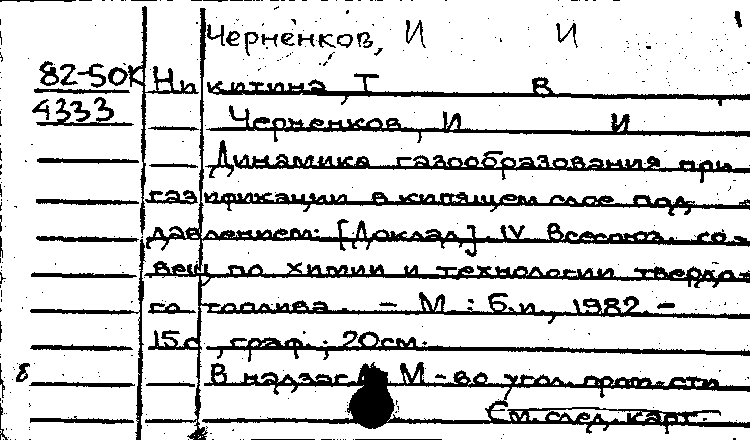 Черненков, И И
82-50К Никитина, Т В
4333 Черненков, И И
Динамика газообразования при
газификации в кипящем слое под
давлением: [Доклад]. IV Всесоюз. со-
вещ по химии и технологии твердо-
го топлива. - М.: Б.и., 1982. -
15с., граф.; 20см.
б В надзаг.: М-во угол. пром-сти
См. след. карт.